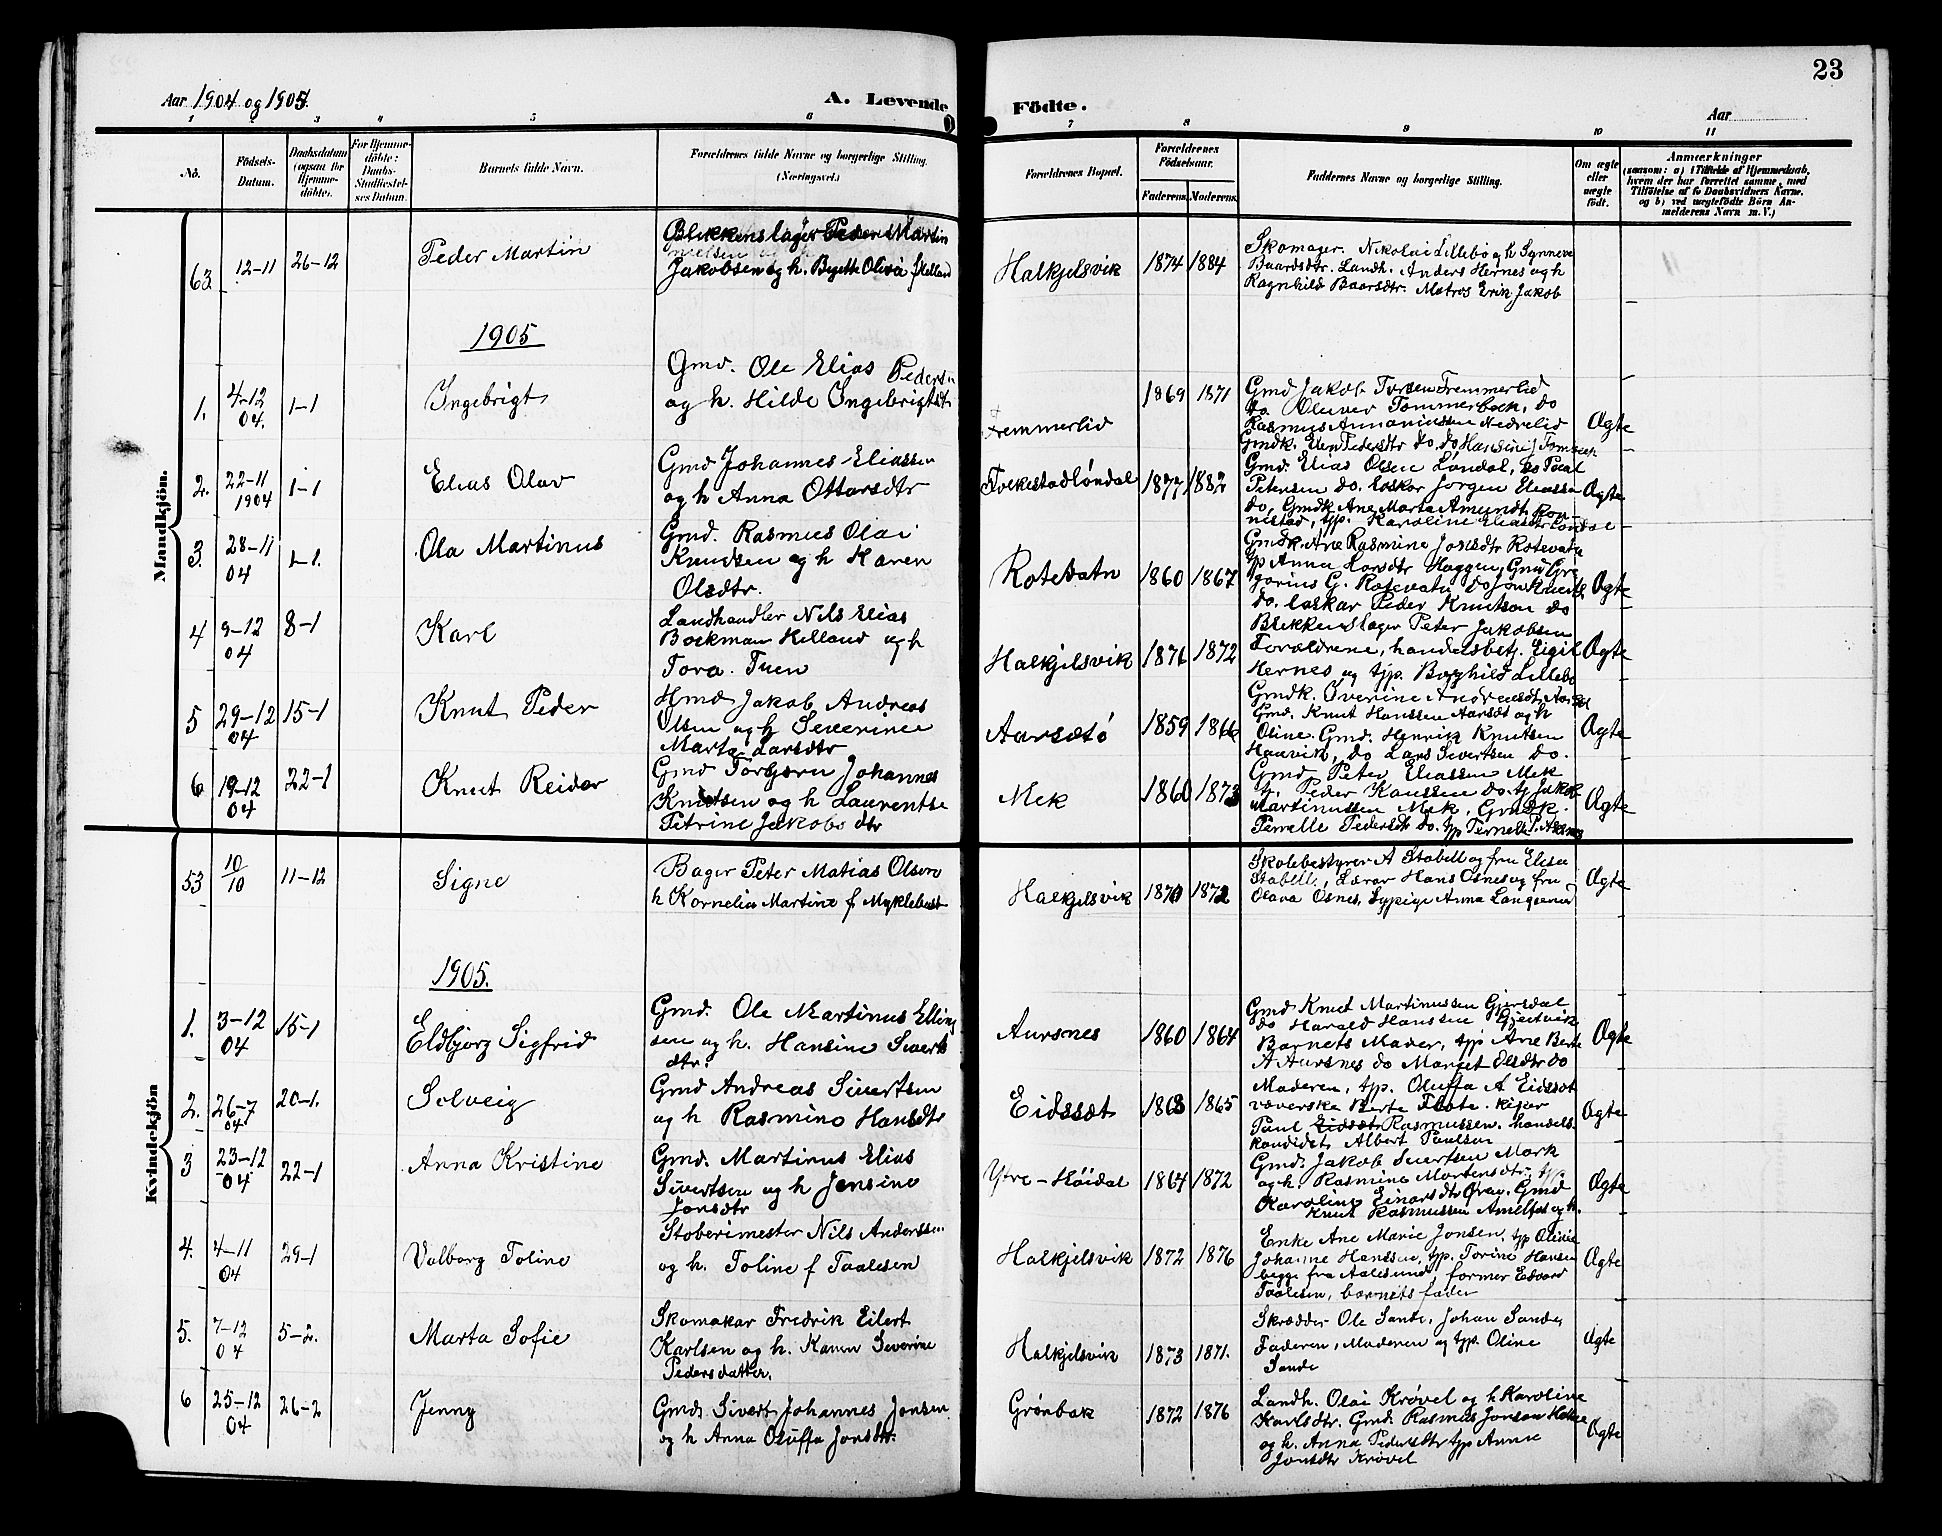 23
Aar 1904 og 1905.
A. Levende Födte.
Aar
1 2 3 4 5 6 7 8 9 10 11
No.
Födsels-Datum.
Daabsdatum (ogsaa for Hjemme-döbte).
For Hjemme-döbte: Daabs-Stadfæstel-ses Datum.
Barnets fulde Navn.
Forældrenes fulde Navne og borgerlige Stilling. (Næringsvei.)
Forældrenes Bopæl.
Forældrenes Födselsaar.
Faderens. Moderens.
Faddernes Navne og borgerlige Stilling.
Om ægte eller uægte födt.
Anmærkninger
(saasom: a) i Tilfælde af Hjemmedaab, hvem der har forrettet samme, med Tilföielse af to Daabsvidners Navne. og b) ved uægtefödte Börn An-melderens Navn m. V.)
Mandkjön.
63. 12-11 26-12 Peder Martin
Blikkenslager Peder Martin
Jakobsen og h. Byette Olivia f Helland
Halkjelsvik 1874 1884
Skomager Nikolai Lillebø og h Synneve
Baardsdtr. Landh. Anders Hernes og h
Ragnhild Baarsdtr. Matros Erik Jakob
1905
1. 4-12 04. 1-1 Ingebrigt
Gmd. Ole Elias Peders
og h. Hilde Ingebrigtst
Fremmerlid 1869 1871
Gmd Jakob Fremmerlid
do Oluver Tommerbak, do
Rasmus Annaniassen Nedrelid
Gmdk. Elen Pedersdtr do, do Hansine
Ægte
2. 22-11 1904 1-1 Elias Olav
Gmd Johannes Eliassen
og h Anna Ottarsdtr
Folkestadløndal 1877 1882
Gmd. Elias Olsen Løndal, do Paal
Petersen do. Laskar Jørgen Eliassen
do, Gmdk Ane Marta Amundt
nistad, typ. Karoline Eliasdtr Løndal
Ægte
3. 28-11 04 1-1. Ola Martinus
Gmd. Rasmus Olai
Knudsen og h Karen
Olsdtr.
Rotevatn 1860 1867
Gmdk. Ane Rasmine Jonsdtr Rotevatn
typ Anna Larsdtr Haggen, Gmd Gre
gorius G. Rotevatn do Jon
do. Laskar Peder Knutsen do
Ægte
4 9-12 04 8-1 Karl
Landhandler Nils Elias
Bockman Helland og h
Tora. Tuen
Halkjelsvik 1871 1872
Blikkenslager Peter Jakobsen
Forældrene, handelsbetj. Eigil
Hernes og typ. Borghild Lillebø
Ægte
5 29-12 04 15-1 Knut Peder
Hmd Jakob Andreas
Olsen og h Severine
Marta Larsdtr
Aarsætø 1859 1866
Gmdk. Iverine Andreasdt
Gmd. Knut Hanssen Aarsæt og h
Oline. Gmd. Henrik Knutsen
Hauvik, do Lars Sivertsen do.
Ægte
6 19-12 04 22-1 Knut Reidar
Gmd Torbjørn Johannes
Knutsen og h Laurentse
Petrine Jakobsdtr
Mek 1860 1873
Gmd Peter Eliassen Mek
Peder Hanssen do. ty Jakob
Martinussen Mek, Gmdk.
Pernelle Pedersdt do. typ Pernelle P.
Ægte
Kvindekjön
53 10/10 11-12 Signe
Bager Peter Matias Olsen
h Kornelia Martine f Myklebust
Halkjelsvik 1870 1872
Skolebestyrer A Stabell og fru Elisa
Stabell, Lærar Hans Osnes og fru
Olava Osnes, Sypige Anna
Ægte
1905.
1. 3-12 04 15-1 Eldbjørg Sigfrid
Gmd. Ole Martinus Elling
sen og h. Hansine Sivert
dtr.
Aursnes 1860 1864
Gmd Knut Martinussen Gjersdal
do Harald Hanssen Gjertvik
Barnets Moder, typ Ane Berte
A Aursnes do Margit Olsdtr do
Ægte
2. 26-7 04 20-1. Solveig
Gmd Andreas Sivertsen
og h Rasmine Hansdtr
Eidssæt 1868 1865
Moderen, typ. Oluffa A Eidsæt
væverske Berte Flote. kiser
Paul Eidsæt Rasmussen. handels
kandidat Albert Paulsen
Ægte
3 23-12 04 22-1 Anna Kristine
Gmd. Martinus Elias
Sivertsen og h Jensine
Jonsdtr
Ytre-Høidal 1864 1872
Gmd. Jakob Sivertsen Mork
og h. Rasmine Mortensdtr. typ
Karoline Einarsdtr Gmd
Knut Rasmussen Amelfot og h.
Ægte
4. 4-11 04 29-1 Valborg Toline
Støberimester Nils Anderssen
og h. Toline f Taalesen
Halkjelsvik 1872 1876
Enke Ane Marie Jonsen, typ Olivie
Johanne Hanssen, typ. Torine Hansen
begge fra Aalesund, former Edvard
Taalesen, barnets fader
Ægte
5. 7-12 04 5-2. Marta Sofie
Skomakar Fredrik Eilert
Karlsen og h. Karen Severine
Pedersdatter.
Halkjelsvik 1873 1871.
Skrædder Ole Sande, Johan Sande,
Faderen, Moderen og typ. Oline
Sande
Ægte
6 25-12 04 26-2 Jenny
Gmd. Sivert Johannes Jonsen
og h Anna Oluffa Jonsdtr.
Grønbak 1872 1876
Landh. Olai Krøvel og h Karoline
Karlsdtr. Gmd. Rasmus Jonsen
og h. Anna Pedersdtr typ Anne
Jonsdtr Krøvel
Ægte